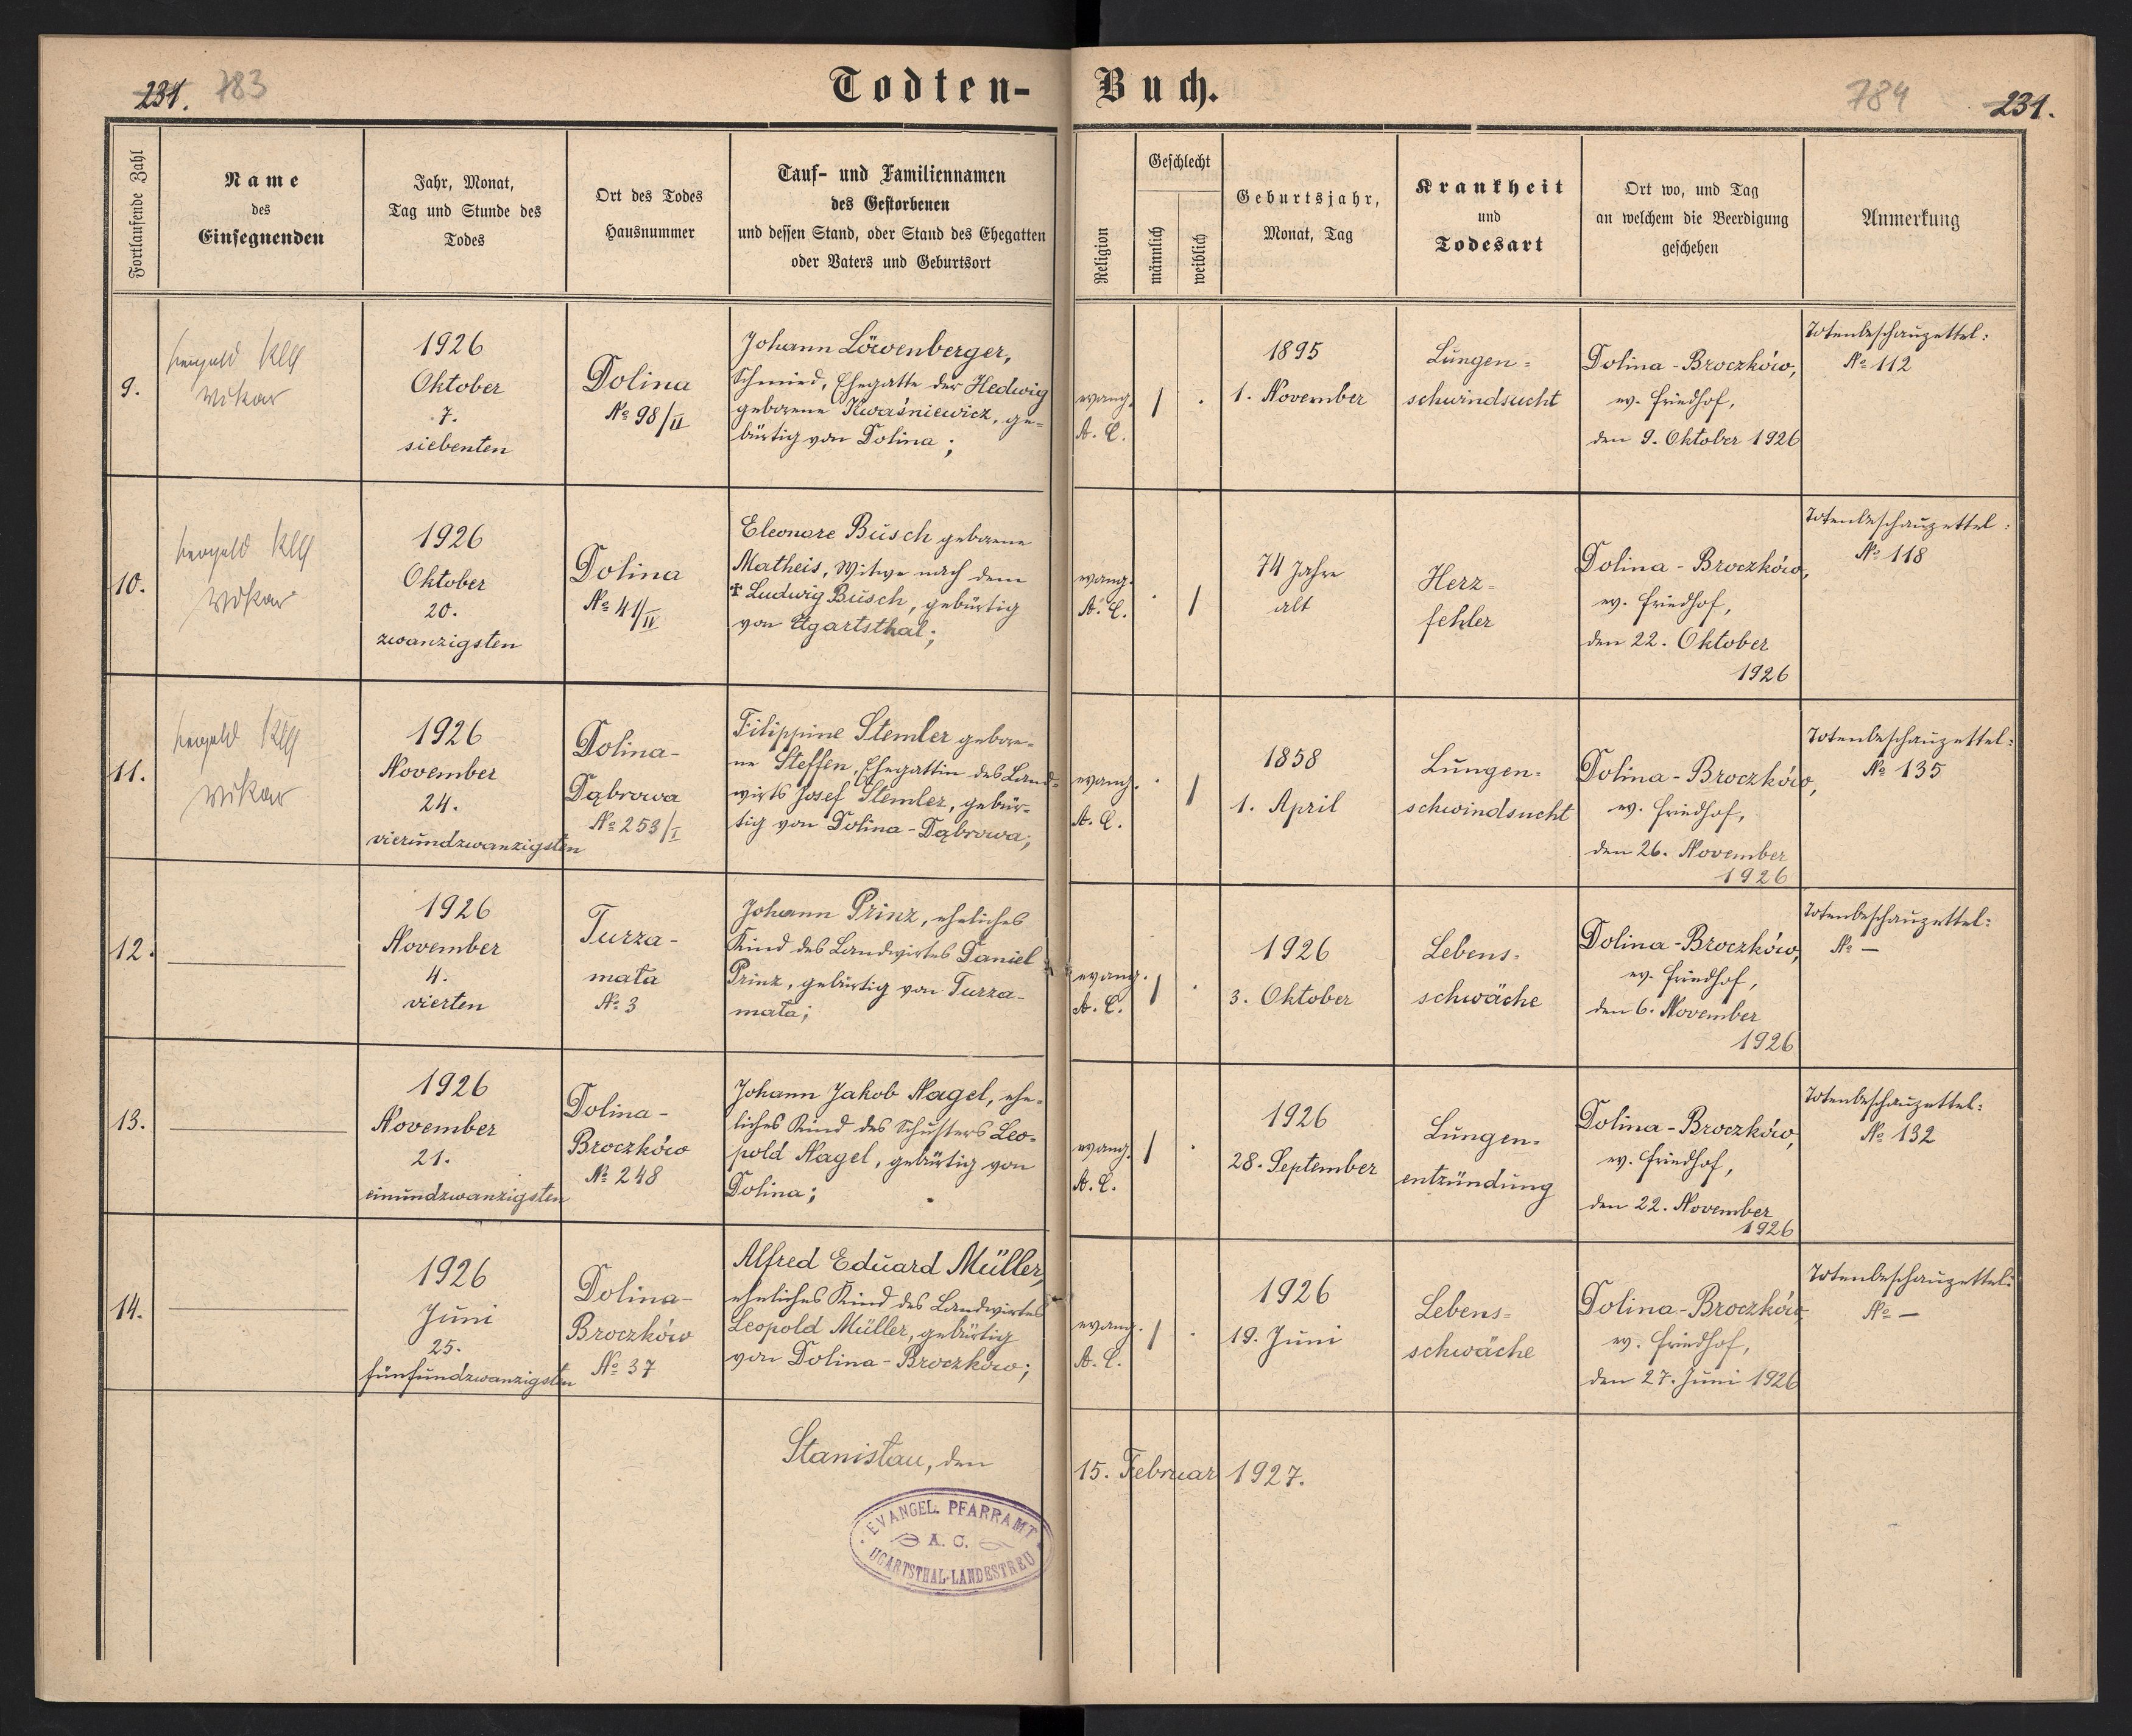 231. 783
Todten-Buch.
784 231.
Fortlaufende Zahl
Name
des
Einsegnenden
Jahr, Monat,
Tag und Stunde des
Todes
Ort des Todes
Hausnummer
Tauf- und Familiennamen
des Gestorbenen
und dessen Stand, oder Stand des Ehegatten
oder Vaters und Geburtsort
Religion
Geschlecht
männlich
weiblich
Geburtsjahr,
Monat, Tag
Krankheit
und
Todesart
Ort wo, und Tag
an welchem die Beerdigung
geschehen
Anmerkung
9.
Wikar
1926
Oktober
7.
siebenten
Dolina
No 98/II
Johann Löwenberger,
Schmied, Ehegatte der Hedwig
geborene Kwaśniewicz, ge-
bürtig von Dolina;
evang.
A. C.
1895
1. November
Lungen-
schwindsucht
Dolina-Broczków,
ev. Friedhof,
den 9. Oktober 1926
Totenbeschauzettel:
No 112
10.
Wikar
1926
Oktober
20.
zwanzigsten
Dolina
No 41/IV
Eleonore Busch geborene
Matheis, Witwe nach dem
† Ludwig Busch, gebürtig
von Ugartsthal;
evang.
A. C.
74 Jahre
alt
Herz-
fehler
Dolina-Broczków,
ev. Friedhof,
den 22. Oktober
1926
Totenbeschauzettel:
No 118
11.
Wikar
1926
November
24.
vierundzwanzigsten
Dolina-
Dąbrowa
No 253/I
Filippine Stemler gebore-
ne Steffen, Ehegattin des Land-
wirts Josef Stemler, gebür-
tig von Dolina-Dąbrowa;
evang.
A. C.
1858
1. April
Lungen-
schwindsucht
Dolina-Broczków,
ev. Friedhof,
den 26. November
1926
Totenbeschauzettel:
No 135
12.
1926
November
4.
vierten
Turza-
mała
No 3
Johann Prinz, eheliches
Kind des Landwirtes Daniel
Prinz, gebürtig von Turza-
mała;
evang.
A. C.
1926
3. Oktober
Lebens-
schwäche
Dolina-Broczków,
ev. Friedhof,
den 6. November
1926
Totenbeschauzettel:
No —
13.
1926
November
21.
einundzwanzigsten
Dolina-
Broczków
No 248
Johann Jakob Nagel, ehe-
liches Kind des Schusters Leo-
pold Nagel, gebürtig von
Dolina;
evang.
A. C.
1926
28. September
Lungen-
entzündung
Dolina-Broczków,
ev. Friedhof,
den 22. November
1926
Totenbeschauzettel:
No 132
14.
1926
Juni
25.
fünfundzwanzigsten
Dolina-
Broczków
No 37
Alfred Eduard Müller,
eheliches Kind des Landwirtes
Leopold Müller, gebürtig
von Dolina-Broczków;
evang.
A. C.
1926
19. Juni
Lebens-
schwäche
Dolina-Broczków,
ev. Friedhof,
den 27. Juni 1926
Totenbeschauzettel:
No —
Stanislau, den 15. Februar 1927.
EVANGEL. PFARRAMT
A. C.
UGARTSTHAL-LANDESTREU